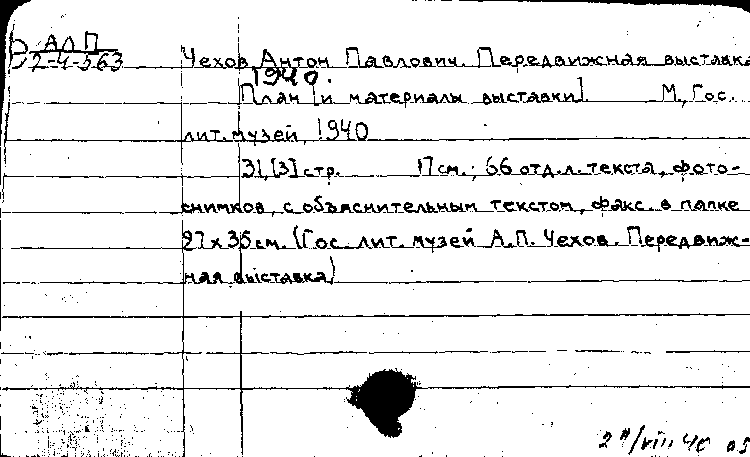 АДП
2-4-563
Чехов, Антон Павлович. Передвижная выставка
1940.
План [и материалы выставки]. М., Гос.
лит. музей, 1940
31,[3] стр. 17 см.; 66 отд. л. текста, фото-
снимков, с объяснительным текстом, факс. в папке
27 x 35 см. (Гос. лит. музей А.П. Чехов. Передвиж-
ная выставка)
VIII 40